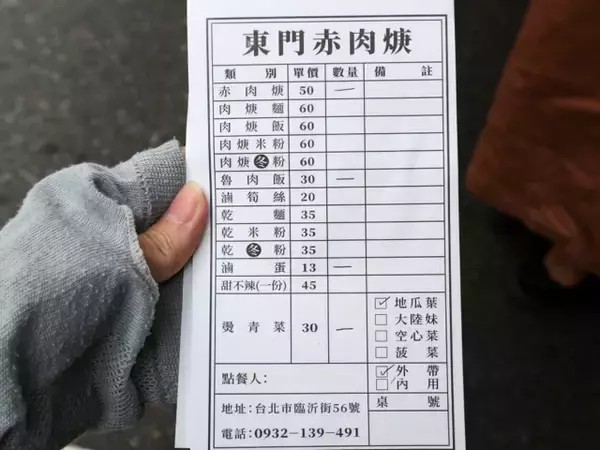 東門赤肉焿
類別 單價 數量 備註
赤肉焿 50 一
肉焿麵 60
肉焿飯 60
肉焿米粉 60
肉焿冬粉 60
魯肉飯 30 一
滷筍絲 20
乾麵 35
乾米粉 35
乾冬粉 35
滷蛋 13 一
甜不辣(一份) 45
燙青菜 30 一
☑ 地瓜葉
☐ 大陸妹
☐ 空心菜
☐ 菠菜
點餐人：
☑ 外帶
☐ 內用
地址：台北市臨沂街56號
桌號
電話：0932-139-491